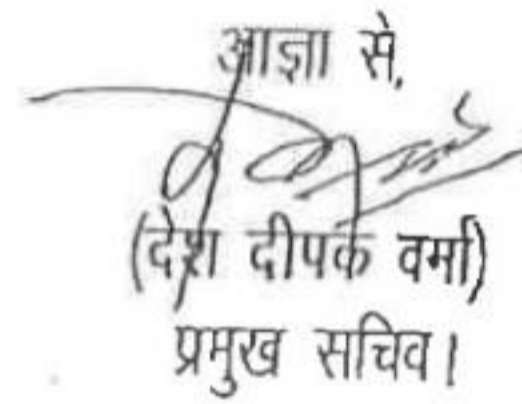 आज्ञा से,
(देश दीपक वर्मा)
प्रमुख सचिव।